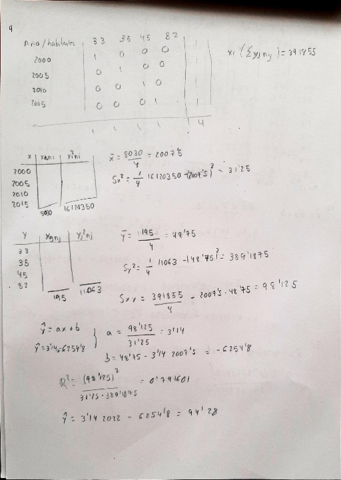 4
Año/habitantes 33 35 45 82
2000 1 0 0 0 1
2005 0 1 0 0 1
2010 0 0 1 0 1
2015 0 0 0 1 1
1 1 1 1 4
= 391855
x xini xi²ni
2000
2005
2010
2015
8030 16120350
x̄ = 8030/4 = 2007'5
Sx² = 1/4 16120350 - (2007'5)² = 31'25
y yjnj yj²nj
33
35
45
82
195 11063
ȳ = 195/4 = 48'75
Sy² = 1/4 11063 - (48'75)² = 389'1875
Sxy = 391855/4 - 2007'5 · 48'75 = 98'125
ŷ = ax + b
a = 98'125/31'25 = 3'14
ŷ = 3'14x - 6254'8
b = 48'75 - 3'14 · 2007'5 = -6254'8
R² = (98'125)²/31'25 · 389'1875 = 0'791601
ŷ = 3'14 · 2022 - 6254'8 = 94'28